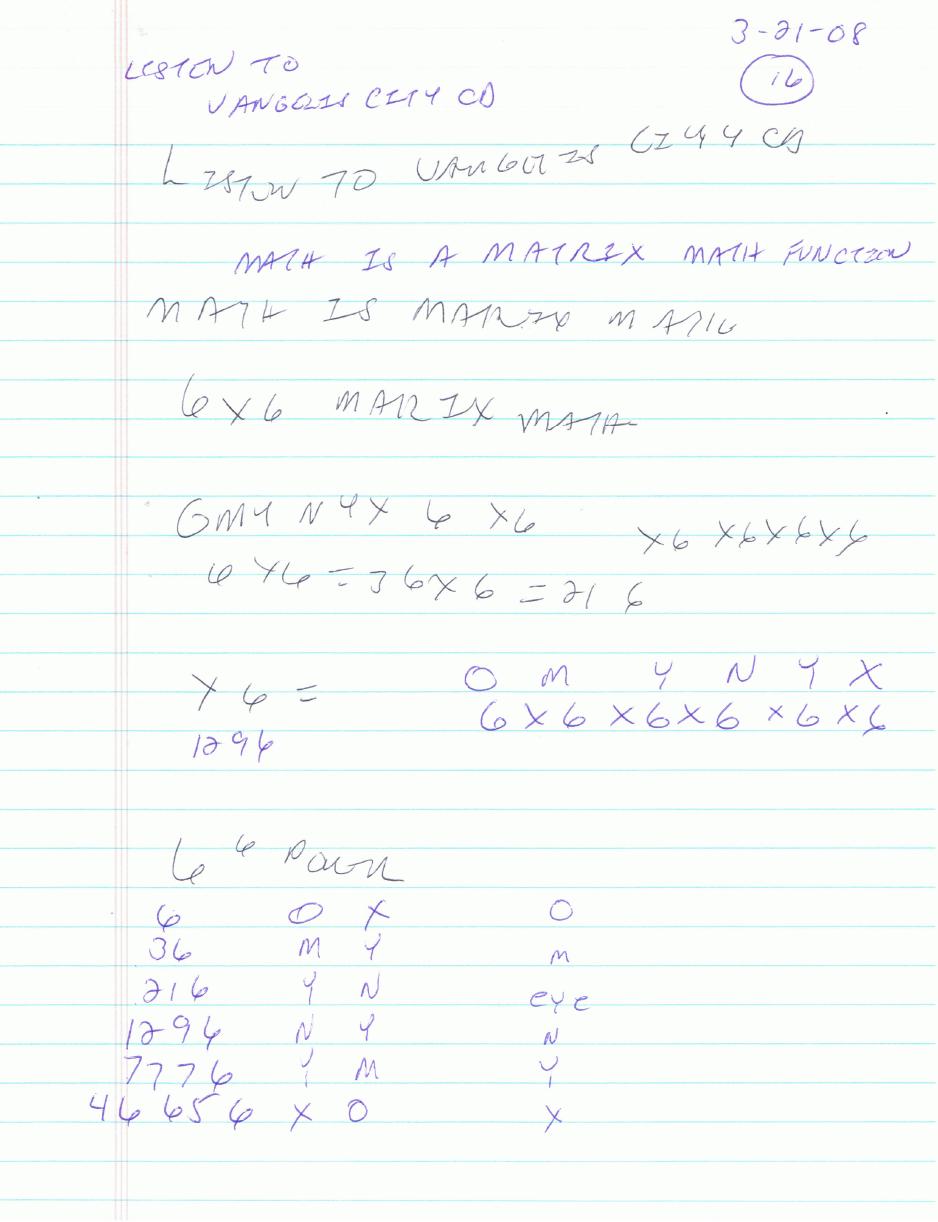 3-21-08
16
LISTEN TO
VANGELIS CITY CD
LISTEN TO VANGELIS CITY CD
MATH IS A MATRIX MATH FUNCTION
MATH IS MARIX MATH
6X6 MARIX MATH
OMY NYX 6 X6 X6 X6X6X6
6 X6 = 36X6 = 216
X 6 =
1296
O M Y N Y X
6 X 6 X 6 X 6 X 6 X 6
6 6 POWER
6 O X O
36 M Y M
216 Y N eye
1296 N Y N
7776 Y M Y
46 656 X O X